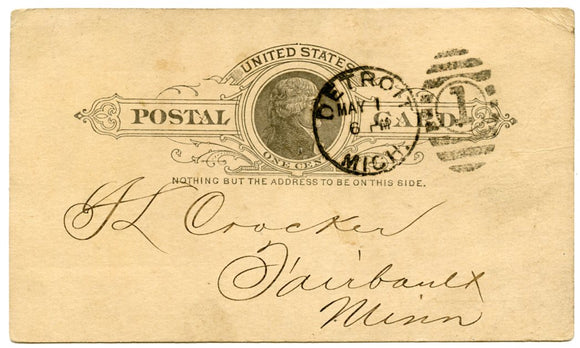 UNITED STATES
POSTAL CARD.
ONE CENT
DETROIT
MAY 1
6 PM
MICH.
1
NOTHING BUT THE ADDRESS TO BE ON THIS SIDE.
Crocker
Fairbault
Minn